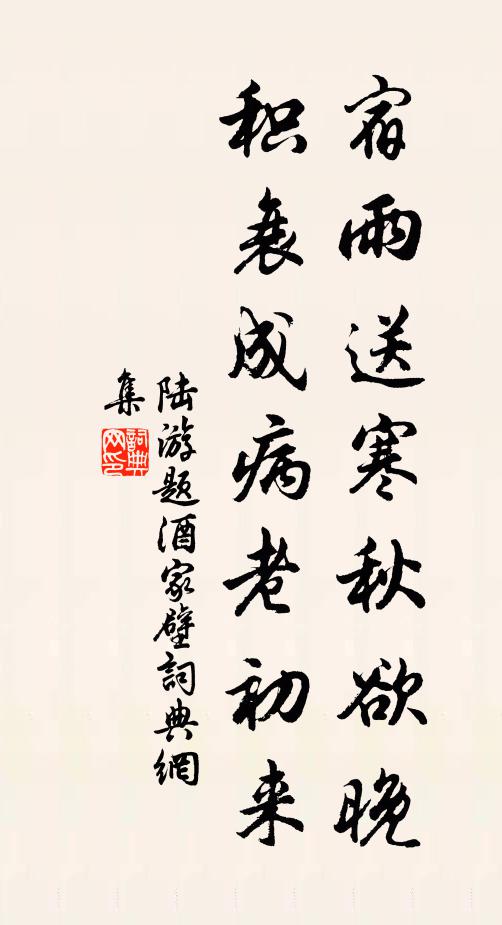 宿雨送寒秋欲晚
积衰成病老初来
陆游题酒家壁詞典網
集
詞典
网印